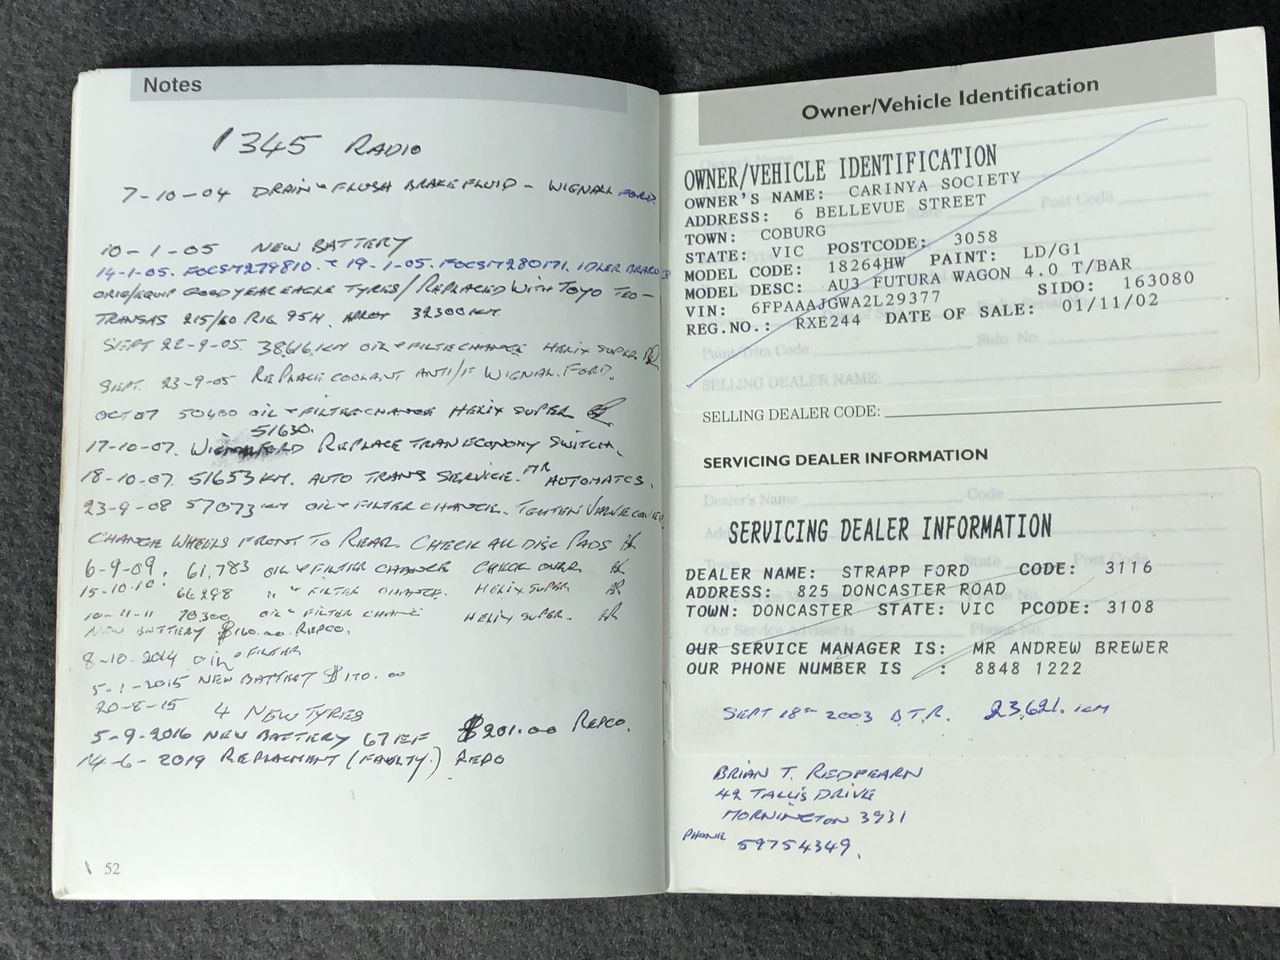 Notes
1345 RADIO
7-10-04 DRAIN & FLUSH BRAKE FLUID - WIGNALL FORD.
10-1-05 NEW BATTERY
14-1-05. FOCSM279810. & 19-1-05. FOCSM280171. IDLER
ORIG/EQUIP GOODYEAR EAGLE TYRES/REPLACED WITH TOYO TEO-
TRANSAS 215/60 R16 95H. 32300 KM
SEPT 22-9-05. 38616 KM OIL & FILTER CHANGE HELIX SUPER BR
SEPT. 23-9-05 REPLACE COOLANT ANTI/F WIGNAL. FORD.
OCT 07 50400 OIL & FILTER CHANGE HELIX SUPER
51630.
17-10-07. FORD REPLACE TRAN ECONOMY SWITCH.
18-10-07. 51653 KM. AUTO TRANS SERVICE. MR AUTOMATCS.
23-9-08 57073 KM OIL & FILTER CHANGE. TIGHTEN VALVE COVER
CHANGE WHEELS FRONT TO REAR CHECK ALL DISC PADS BR
6-9-09. 61,783 OIL & FILTER CHANGE CHECK OVER BR
15-10-10. 66298 " " FILTER CHANGE. HELIX SUPER BR
10-11-11 70,300 OIL & FILTER CHANGE HELIX SUPER. BR
NEW BATTERY $160.00. REPCO.
8-10.2014 OIL & FILTER
5-1-2015 NEW BATTERY $170.00
20-8-15 4 NEW TYRES
5-9-2016 NEW BATTERY 67EF $201.00 REPCO.
14-6-2019 REPLACMENT (FAULTY.) REPO
52
Owner/Vehicle Identification
OWNER/VEHICLE IDENTIFICATION
OWNER'S NAME: CARINYA SOCIETY
ADDRESS: 6 BELLEVUE STREET
TOWN: COBURG
STATE: VIC POSTCODE: 3058
MODEL CODE: 18264HW PAINT: LD/G1
MODEL DESC: AU3 FUTURA WAGON 4.0 T/BAR
VIN: 6FPAAAJGWA2L29377 SIDO: 163080
REG.NO.: RXE244 DATE OF SALE: 01/11/02
Paint/Trim Code Sido. No.
SELLING DEALER NAME:
SELLING DEALER CODE:
SERVICING DEALER INFORMATION
Dealer's Name Code
SERVICING DEALER INFORMATION
State Post Code
DEALER NAME: STRAPP FORD CODE: 3116
ADDRESS: 825 DONCASTER ROAD
TOWN: DONCASTER STATE: VIC PCODE: 3108
Our Service Advisor is Phone No.
OUR SERVICE MANAGER IS: MR ANDREW BREWER
OUR PHONE NUMBER IS : 8848 1222
SEPT 18TH 2003 B.T.R. 23,621. KM
BRIAN T. REDFEARN
42 TALLIS DRIVE
MORNINGTON 3931
PHONE 59754349.